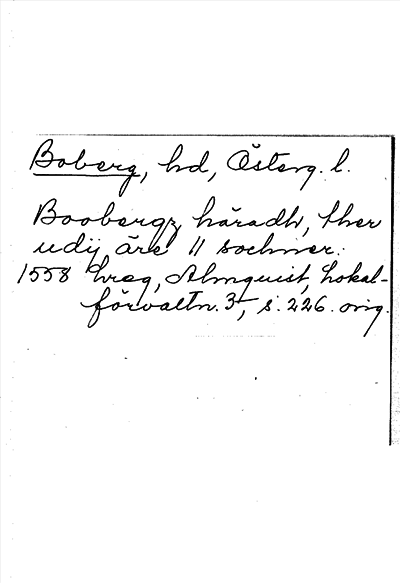 Boberg, hd, Österg. l.
Boobergz häradh, ther
udij äre 11 sochner.
1558 hreg, Almquist, Lokal-
förvaltn. 3, s. 226. orig.